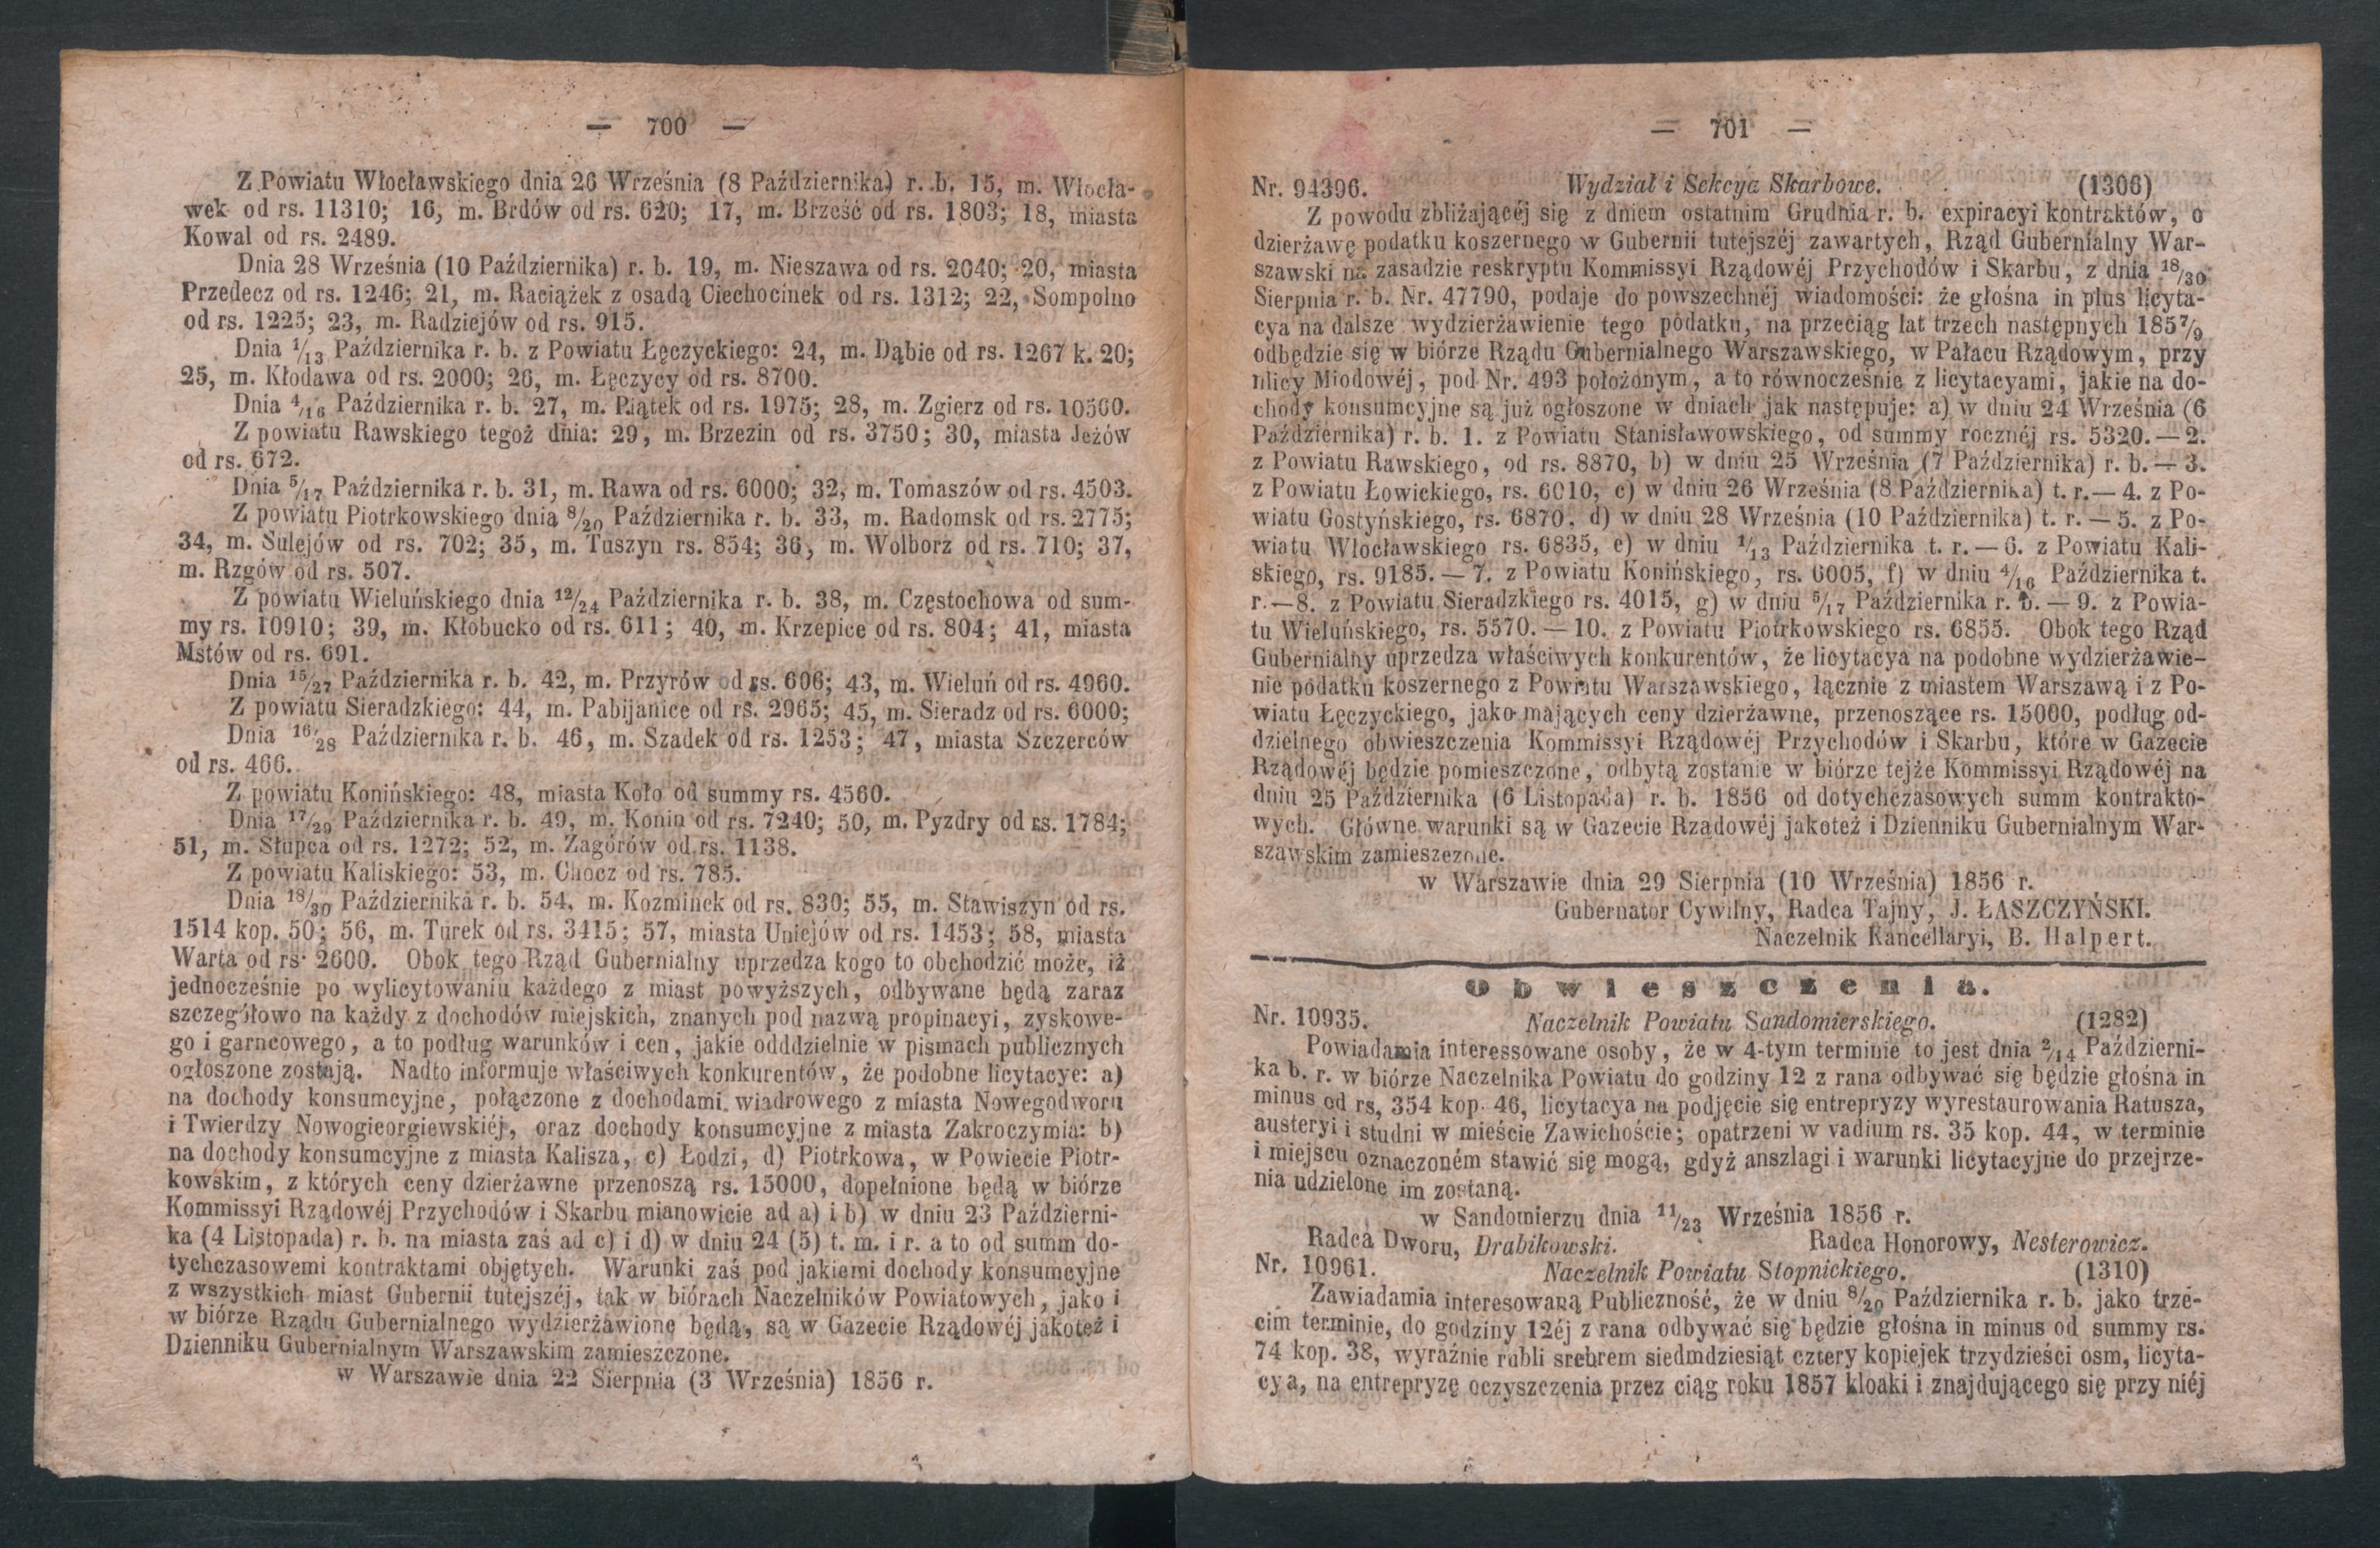 — 700 —
Z Powiatu Włocławskiego dnia 26 Września (8 Października) r. b. 15, m. Włocła-
wek od rs. 11310; 16, m. Brdów od rs. 620; 17, m. Brześć od rs. 1803; 18, miasta
Kowal od rs. 2489.
Dnia 28 Września (10 Października) r. b. 19, m. Nieszawa od rs. 2040; 20, miasta
Przedecz od rs. 1246; 21, m. Raciążek z osadą Ciechocinek od rs. 1312; 22, Sompolno
od rs. 1225; 23, m. Radziejów od rs. 915.
Dnia 1/13 Października r. b. z Powiatu Łęczyckiego: 24, m. Dąbie od rs. 1267 k. 20;
25, m. Kłodawa od rs. 2000; 26, m. Łęczycy od rs. 8700.
Dnia 4/16 Października r. b. 27, m. Piątek od rs. 1975; 28, m. Zgierz od rs. 10560.
Z powiatu Rawskiego tegoż dnia: 29, m. Brzezin od rs. 3750; 30, miasta Jeżów
od rs. 672.
Dnia 5/17 Października r. b. 31, m. Rawa od rs. 6000; 32, m. Tomaszów od rs. 4503.
Z powiatu Piotrkowskiego dnia 8/20 Października r. b. 33, m. Radomsk od rs. 2775;
34, m. Sulejów od rs. 702; 35, m. Tuszyn rs. 854; 36, m. Wolborz od rs. 710; 37,
m. Rzgów od rs. 507.
Z powiatu Wieluńskiego dnia 12/24 Października r. b. 38, m. Częstochowa od sum-
my rs. 10910; 39, m. Kłobucko od rs. 611; 40, m. Krzepice od rs. 804; 41, miasta
Mstów od rs. 691.
Dnia 15/27 Października r. b. 42, m. Przyrów od rs. 606; 43, m. Wieluń od rs. 4960.
Z powiatu Sieradzkiego: 44, m. Pabijanice od rs. 2965; 45, m. Sieradz od rs. 6000;
Dnia 16/28 Października r. b. 46, m. Szadek od rs. 1253; 47, miasta Szczerców
od rs. 466.
Z powiatu Konińskiego: 48, miasta Koło od summy rs. 4560.
Dnia 17/29 Października r. b. 49, m. Konin od rs. 7240; 50, m. Pyzdry od rs. 1784;
51, m. Słupca od rs. 1272; 52, m. Zagórów od rs. 1138.
Z powiatu Kaliskiego: 53, m. Chocz od rs. 785.
Dnia 18/30 Października r. b. 54, m. Kozminek od rs. 830; 55, m. Stawiszyn od rs.
1514 kop. 50; 56, m. Turek od rs. 3415; 57, miasta Uniejów od rs. 1453; 58, miasta
Warta od rs. 2600. Obok tego Rząd Gubernialny uprzedza kogo to obchodzić może, iż
jednocześnie po wylicytowaniu każdego z miast powyższych, odbywane będą zaraz
szczegółowo na każdy z dochodów miejskich, znanych pod nazwą propinacyi, zyskowe-
go i garncowego, a to podług warunków i cen, jakie odddzielnie w pismach publicznych
ogłoszone zostają. Nadto informuje właściwych konkurentów, że podobne licytacye: a)
na dochody konsumcyjne, połączone z dochodami wiadrowego z miasta Nowegodworu
i Twierdzy Nowogieorgiewskiéj, oraz dochody konsumcyjne z miasta Zakroczymia: b)
na dochody konsumcyjne z miasta Kalisza, c) Łodzi, d) Piotrkowa, w Powiecie Piotr-
kowskim, z których ceny dzierżawne przenoszą rs. 15000, dopełnione będą w biórze
Kommissyi Rządowéj Przychodów i Skarbu mianowicie ad a) i b) w dniu 23 Październi-
ka (4 Listopada) r. b. na miasta zaś ad c) i d) w dniu 24 (5) t. m. i r. a to od summ do-
tychczasowemi kontraktami objętych. Warunki zaś pod jakiemi dochody konsumcyjne
z wszystkich miast Gubernii tutejszéj, tak w biórach Naczelników Powiatowych, jako i
w biórze Rządu Gubernialnego wydzierżawione będą, są w Gazecie Rządowéj jakoteż i
Dzienniku Gubernialnym Warszawskim zamieszczone.
w Warszawie dnia 22 Sierpnia (3 Września) 1856 r.
— 701 —
Nr. 94396. Wydział i Sekcya Skarbowe. (1306)
Z powodu zbliżającéj się z dniem ostatnim Grudnia r. b. expiracyi kontraktów, o
dzierżawę podatku koszernego w Gubernii tutejszéj zawartych, Rząd Gubernialny War-
szawski na zasadzie reskryptu Kommissyi Rządowéj Przychodów i Skarbu, z dnia 18/30
Sierpnia r. b. Nr. 47790, podaje do powszechnéj wiadomości: że głośna in plus licyta-
cya na dalsze wydzierżawienie tego podatku, na przeciąg lat trzech następnych 1857/9
odbędzie się w biórze Rządu Gubernialnego Warszawskiego, w Pałacu Rządowym, przy
ulicy Miodowéj, pod Nr. 493 położonym, a to równocześnie z licytacyami, jakie na do-
chody konsumcyjne są już ogłoszone w dniach jak następuje: a) w dniu 24 Września (6
Października) r. b. 1. z Powiatu Stanisławowskiego, od summy rocznéj rs. 5320. — 2.
z Powiatu Rawskiego, od rs. 8870, b) w dniu 25 Września (7 Października) r. b. — 3.
z Powiatu Łowickiego, rs. 6010, c) w dniu 26 Września (8 Października) t. r. — 4. z Po-
wiatu Gostyńskiego, rs. 6870, d) w dniu 28 Września (10 Października) t. r. — 5. z Po-
wiatu Włocławskiego rs. 6835, e) w dniu 1/13 Października t. r. — 6. z Powiatu Kali-
skiego, rs. 9185. — 7. z Powiatu Konińskiego, rs. 6005, f) w dniu 4/16 Października t.
r. — 8. z Powiatu Sieradzkiego rs. 4015, g) w dniu 5/17 Października r. b. — 9. z Powia-
tu Wieluńskiego, rs. 5570. — 10. z Powiatu Piotrkowskiego rs. 6855. Obok tego Rząd
Gubernialny uprzedza właściwych konkurentów, że licytacya na podobne wydzierżawie-
nie podatku koszernego z Powiatu Warszawskiego, łącznie z miastem Warszawą i z Po-
wiatu Łęczyckiego, jako mających ceny dzierżawne, przenoszące rs. 15000, podług od-
dzielnego obwieszczenia Kommissyi Rządowéj Przychodów i Skarbu, które w Gazecie
Rządowéj będzie pomieszczone, odbytą zostanie w biórze tejże Kommissyi Rządowéj na
dniu 25 Października (6 Listopada) r. b. 1856 od dotychczasowych summ kontrakto-
wych. Główne warunki są w Gazecie Rządowéj jakoteż i Dzienniku Gubernialnym War-
szawskim zamieszczone.
w Warszawie dnia 29 Sierpnia (10 Września) 1856 r.
Gubernator Cywilny, Radca Tajny, J. ŁASZCZYŃSKI.
Naczelnik Kancellaryi, B. Halpert.
Obwieszczenia.
Nr. 10935. Naczelnik Powiatu Sandomierskiego. (1282)
Powiadamia interessowane osoby, że w 4-tym terminie to jest dnia 2/14 Październi-
ka b. r. w biórze Naczelnika Powiatu do godziny 12 z rana odbywać się będzie głośna in
minus od rs, 354 kop. 46, licytacya na podjęcie się entrepryzy wyrestaurowania Ratusza,
austeryi i studni w mieście Zawichoście; opatrzeni w vadium rs. 35 kop. 44, w terminie
i miejscu oznaczoném stawić się mogą, gdyż anszlagi i warunki licytacyjne do przejrze-
nia udzielone im zostaną.
w Sandomierzu dnia 11/23 Września 1856 r.
Radca Dworu, Drabikowski. Radca Honorowy, Nesterowicz.
Nr. 10961. Naczelnik Powiatu Stopnickiego. (1310)
Zawiadamia interesowaną Publiczność, że w dniu 8/20 Października r. b. jako trze-
cim terminie, do godziny 12éj z rana odbywać się będzie głośna in minus od summy rs.
74 kop. 38, wyraźnie rubli srebrem siedmdziesiąt cztery kopiejek trzydzieści osm, licyta-
cya, na entrepryzę oczyszczenia przez ciąg roku 1857 kloaki i znajdującego się przy niéj